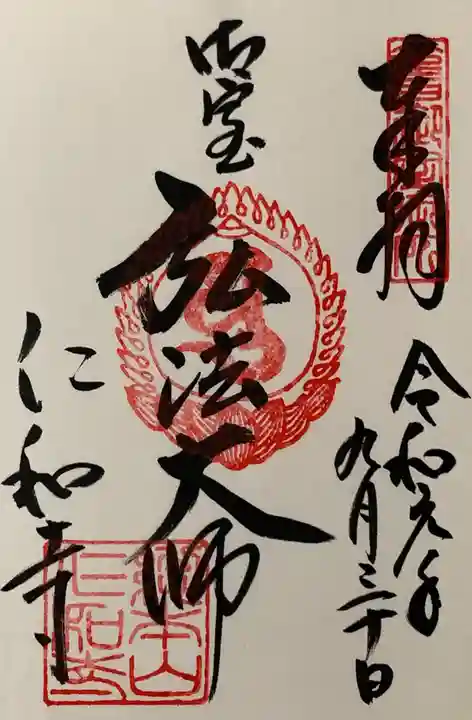 奉拝
令和元年
九月三十日
御室
弘法大師
仁和寺